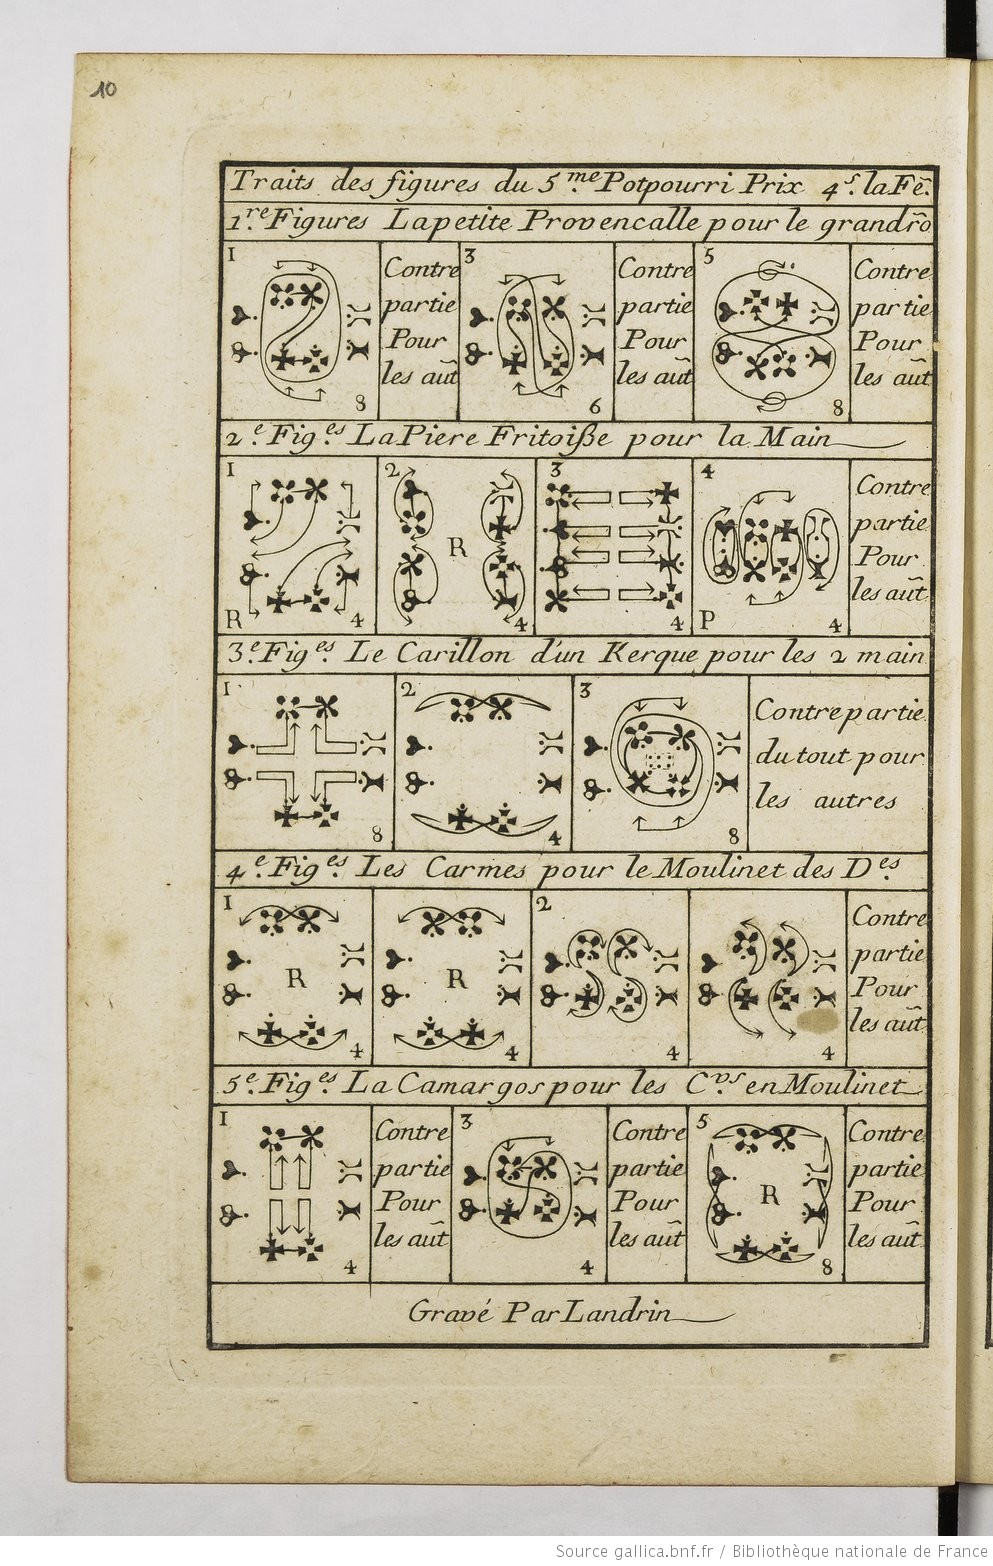 10
Traits des figures du 5.me Potpourri Prix 4s. la Fē.
1re Figures La petite Provencalle pour le grand rõ
1
8
Contre
partie
Pour
les aũt
3
6
Contre
partie
Pour
les aũt
5
8
Contre
partie
Pour
les aũt
2e. Figes La Piere Fritoiße pour la Main
1
R
4
2
R
4
3
4
4
P
4
Contre
partie
Pour
les aũt.
3e. Figes. Le Carillon d'un Kerque pour les 2 main
1
8
2
4
3
8
Contrepartie
du tout pour
les autres
4e. Figes. Les Carmes pour le Moulinet des Des.
1
R
4
R
4
2
4
4
Contre
partie
Pour
les aũt
5e. Figes. La Camargos pour les Cvs. en Moulinet
1
4
Contre
partie
Pour
les aũt
3
4
Contre
partie
Pour
les aũt
5
R
8
Contre
partie
Pour
les aũt.
Gravé Par Landrin
Source gallica.bnf.fr / Bibliothèque nationale de France